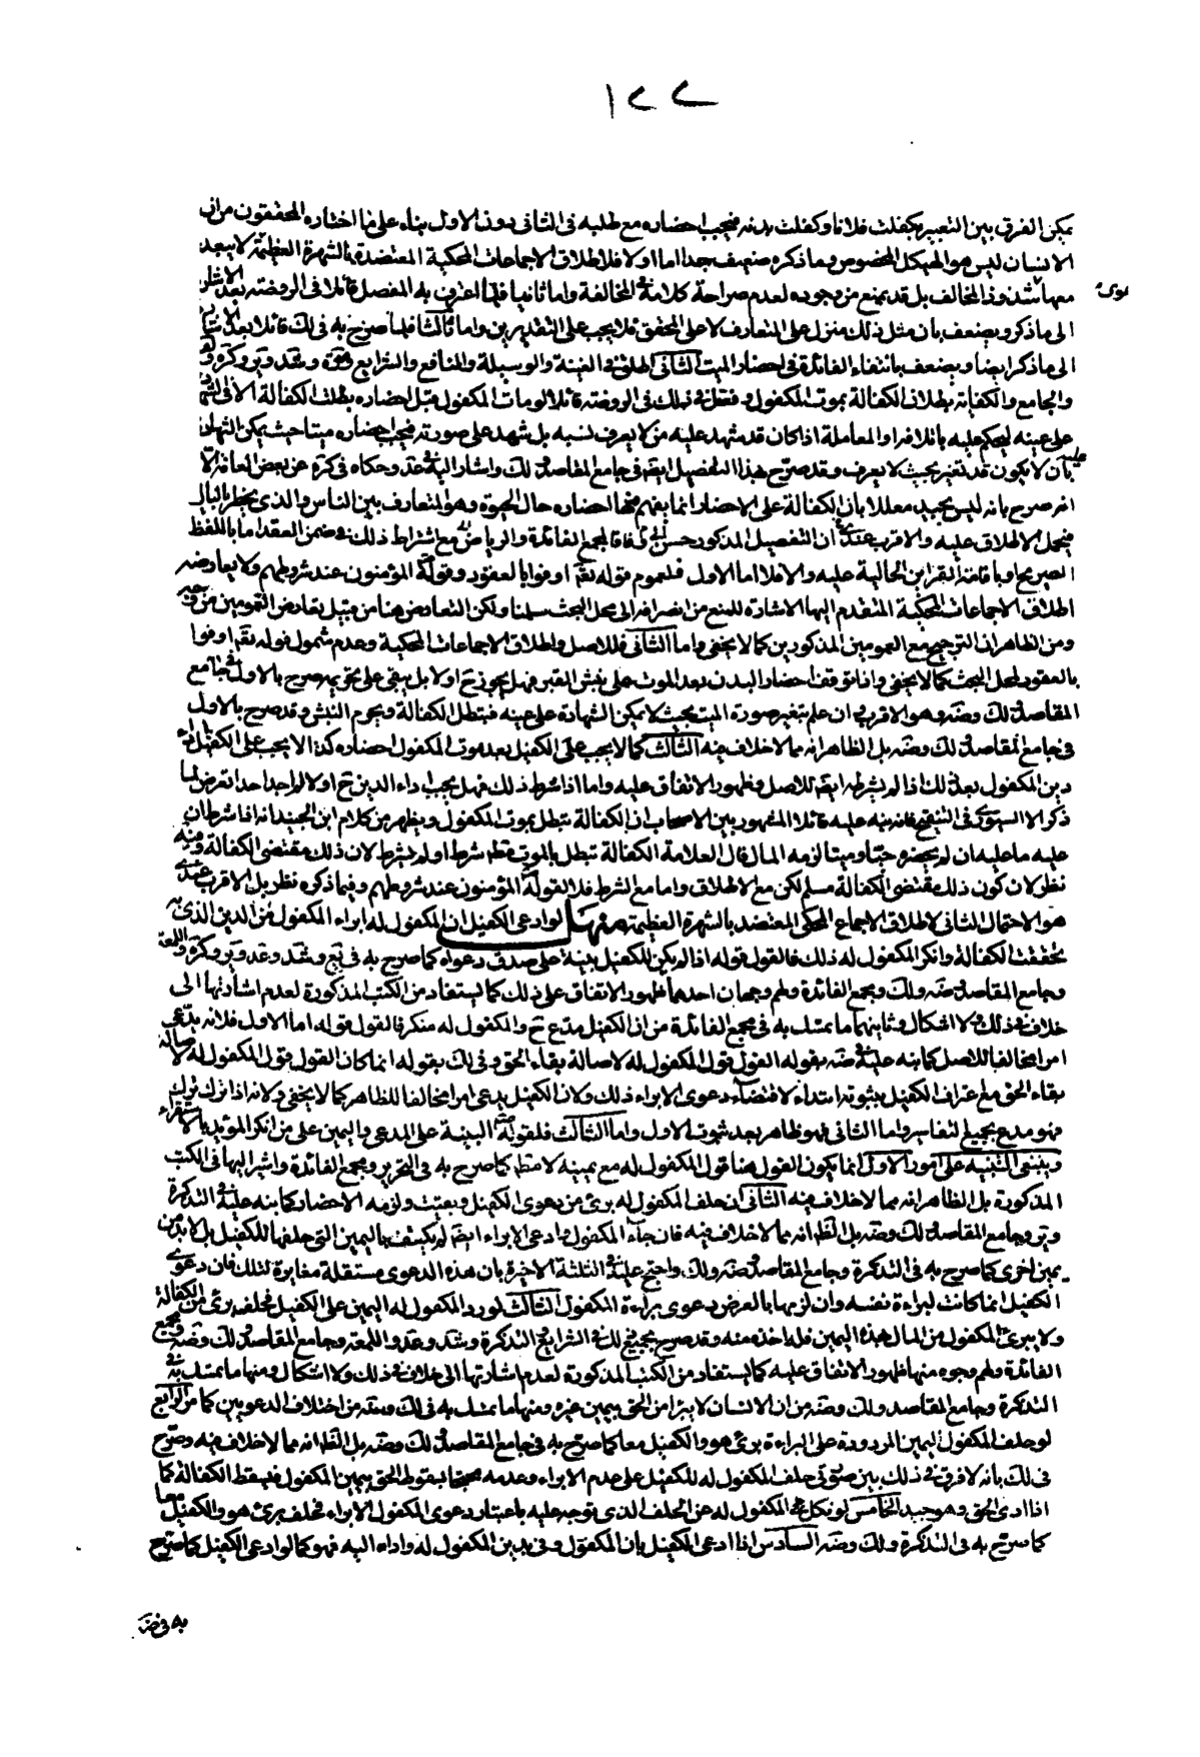 ١٢٢
يمكن الفرق بين التعبير بكفلت فلانا وكفلت بدنه فيجب احضاره مع طلبه فى الثانى دون الاول بناء على ما اختاره المحققون من ان
الانسان ليس هو الهيكل المخصوص وما ذكره ضعيف جدا اما اولا فلاطلاق الاجماعات المحكية المعتضدة بالشهرة العظيمة لا يبعد
معها شذوذ المخالف بل قد يمنع من وجوده لعدم صراحة كلامه فى المخالفة واما ثانيا فلما اعترف به المفصل قائلا فى الروضه بعد الاشارة
الى ما ذكر ويضعف بان مثل ذلك منزل على المتعارف لا على المحقق فلا يجب على التقديرين واما ثالثا فلما صرح به فى لك قائلا بعد الاشارة
الى ما ذكر ايضا ويضعف بانتفاء الفائدة فى احضار الميت الثانى اطلق فى الغنية والوسيلة والنافع والشرايع وشد وير وكره
والجامع والكفاية بطلان الكفالة بموت المكفول وفصل فى ذلك فى الروضه قائلا لو مات المكفول قبل احضاره بطلت الكفالة الا فى الشهادة
على عينه ليحكم عليه باتلافه او المعاملة اذا كان قد شهد عليه من لا يعرف نسبه بل شهد على صورته فيجب احضاره ميتا حيث يمكن الشهادة
عليه بان لا يكون قد تغير بحيث لا يعرف وقد صرح بهذا التفصيل ايضا فى جامع المقاصد ولك واشار اليه فى عد وحكاه فى كره عن بعض العامة الا
انه صرح بانه ليس بجيد معللا بان الكفالة على الاحضار انما يفهم منها احضاره حال الحيوة وهو المتعارف بين الناس والذى يخطر بالبال
فيحمل الاطلاق عليه والاقرب عندى ان التفصيل المذكور حسن وفاقا لمجمع الفائدة والرياض مع اشتراط ذلك فى ضمن العقد اما باللفظ
الصريح او باقامة القرائن الحالية عليه والا فلا اما الاول فلعموم قوله تعم اوفوا بالعقود وقوله المؤمنون عند شروطهم ولا يعارضه
اطلاق الاجماعات المحكية المتقدم اليها الاشارة للمنع من انصرافه الى محل البحث سلمنا ولكن التعارض هنا من قبيل تعارض العمومين من وجه
ومن الظاهر ان الترجيح مع العمومين المذكورين كما لا يخفى واما الثانى فللاصل واطلاق الاجماعات المحكية وعدم شمول قوله تعم اوفوا
بالعقود لمحل البحث كما لا يخفى واذا توقف احضار البدن بعد الموت على نبش القبر فهل يجوز ح او لا بل يبقى على تحريمه صرح بالاول فى جامع
المقاصد ولك وضه وهو الاقرب ان علم بتغير صورة الميت بحيث لا يمكن الشهادة على عينه فتبطل الكفالة ويحرم النبش وقد صرح بالاول
فى جامع المقاصد ولك وضه بل الظاهر انه مما لا خلاف فيه الثالث كما لا يجب على الكفيل بعد موت المكفول احضاره كذا لا يجب على الكفيل اداء
دين المكفول بعد ذلك اذا لم يشترطه ايضا للاصل وظهور الاتفاق عليه واما اذا شرط ذلك فهل يجب اداء الدين ح او لا لم اجد احدا تعرض لما
ذكر الا السيورى فى التنقيح فانه نبه عليه قائلا المشهور بين الاصحاب ان الكفالة تبطل بموت المكفول ويظهر من كلام ابن الجنيد انه اذا شرط ان
عليه ما عليه ان لم يحضره حيا وميتا لزمه المال قال العلامة الكفالة تبطل بالموت قطعا شرط او لم يشرط لان ذلك مقتضى الكفالة وفيه
نظر لان كون ذلك مقتضى الكفالة مسلم لكن مع الاطلاق واما مع الشرط فلا لقوله المؤمنون عند شروطهم وفيما ذكره نظر بل الاقرب عندى
هو الاحتمال الثانى لاطلاق الاجماع المحكى المعتضد بالشهرة العظيمة منها لو ادعى الكفيل ان المكفول له ابراء المكفول من الدين الذى به
تحققت الكفالة وانكر المكفول له ذلك فالقول قوله اذا لم يكن للكفيل بينة على صدق دعواه كما صرح به فى يع وشد وعد وير وكره واللمعة
وجامع المقاصد وضه ولك ومجمع الفائدة ولهم وجهان احدهما ظهور الاتفاق على ذلك كما يستفاد من الكتب المذكورة لعدم اشارتها الى
خلاف فى ذلك ولا اشكال وثانيهما ما تمسك به فى مجمع الفائدة من ان الكفيل مدع ح والمكفول له منكر فالقول قوله اما الاول فلانه يدعى
امرا مخالفا للاصل كما نبه عليه فى ضه بقوله القول قول المكفول له لاصالة بقاء الحق وفى لك بقوله انما كان القول قول المكفول له لاصالة
بقاء الحق مع اعتراف الكفيل بثبوته ابتداء لاقتضاء دعوى الابراء ذلك ولان الكفيل يدعى امرا مخالفا للظاهر كما لا يخفى ولانه اذا ترك ترك
فهو مدع بجميع التفاسير واما الثانى فهو ظاهر بعد ثبوت الاول واما الثالث فلقوله البينة على المدعى واليمين على من انكر المؤيد بالاستقراء
وينبغى التنبيه على امور الاول انما يكون القول هنا قول المكفول له مع يمينه لا مطلقا كما صرح به فى التحرير ومجمع الفائدة واشير اليها فى الكتب
المذكورة بل الظاهر انه مما لا خلاف فيه الثانى ان حلف المكفول له برئ من دعوى الكفيل وبقيت ولزمه الاحضار كما نبه عليه فى التذكرة
وير وجامع المقاصد ولك وضه بل الظ انه مما لا خلاف فيه فان جاء المكفول وادعى الابراء ايضا لم يكتف باليمين التى حلفها للكفيل بل لا بد من
يمين اخرى كما صرح به فى التذكرة وجامع المقاصد وضه ولك واحتج عليه فى الثلثة الاخيرة بان هذه الدعوى مستقلة مغايرة لتلك فان دعوى
الكفيل انما كانت لبراءة نفسه وان لزمها بالعرض دعوى براءة المكفول الثالث لو رد المكفول له اليمين على الكفيل فحلف برئ من الكفالة
ولا يبرئ المكفول من المال بهذه اليمين فله اخذه منه وقد صرح بجميع ذلك فى الشرايع والتذكرة وشد وعد واللمعة وجامع المقاصد ولك وضه ومجمع
الفائدة ولهم وجوه منها ظهور الاتفاق عليه كما يستفاد من الكتب المذكورة لعدم اشارتها الى خلاف فى ذلك ولا اشكال ومنها ما تمسك به فى
التذكرة وجامع المقاصد ولك وضه من ان الانسان لا يبرا من الحق بيمين غيره ومنها ما تمسك به فى لك وضه من اختلاف الدعويين كما مر الرابع
لو حلف المكفول اليمين المردودة على البراءة برئ هو والكفيل معا كما صرح به فى جامع المقاصد ولك وضه بل الظ انه مما لا خلاف فيه وصرح
فى لك بانه لا فرق فى ذلك بين صورتى حلف المكفول له للكفيل على عدم الابراء وعدمه محتجا بسقوط الحق بيمين المكفول فيسقط الكفالة كما
اذا ادى الحق وهو جيد الخامس لو نكل المكفول له عن الحلف الذى توجه عليه باعتبار دعوى المكفول الابراء فحلف برئ هو والكفيل معا
كما صرح به فى التذكرة ولك وضه السادس اذا ادعى الكفيل بان المكفول وفى دين المكفول له واداه اليه فهو كما لو ادعى الكفيل كما صرح
به فى ضه